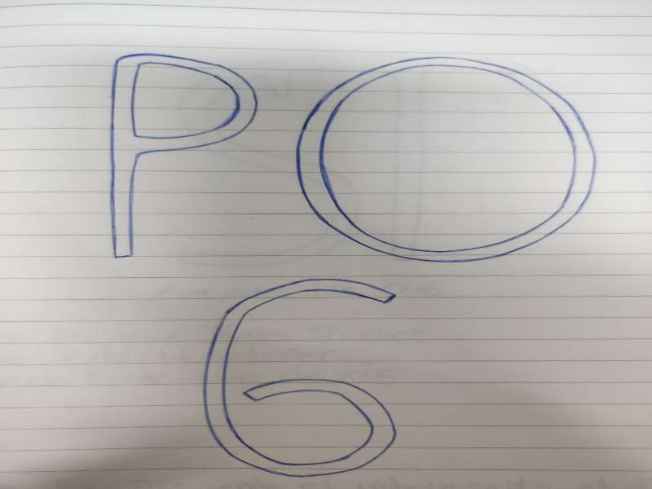 PO
6